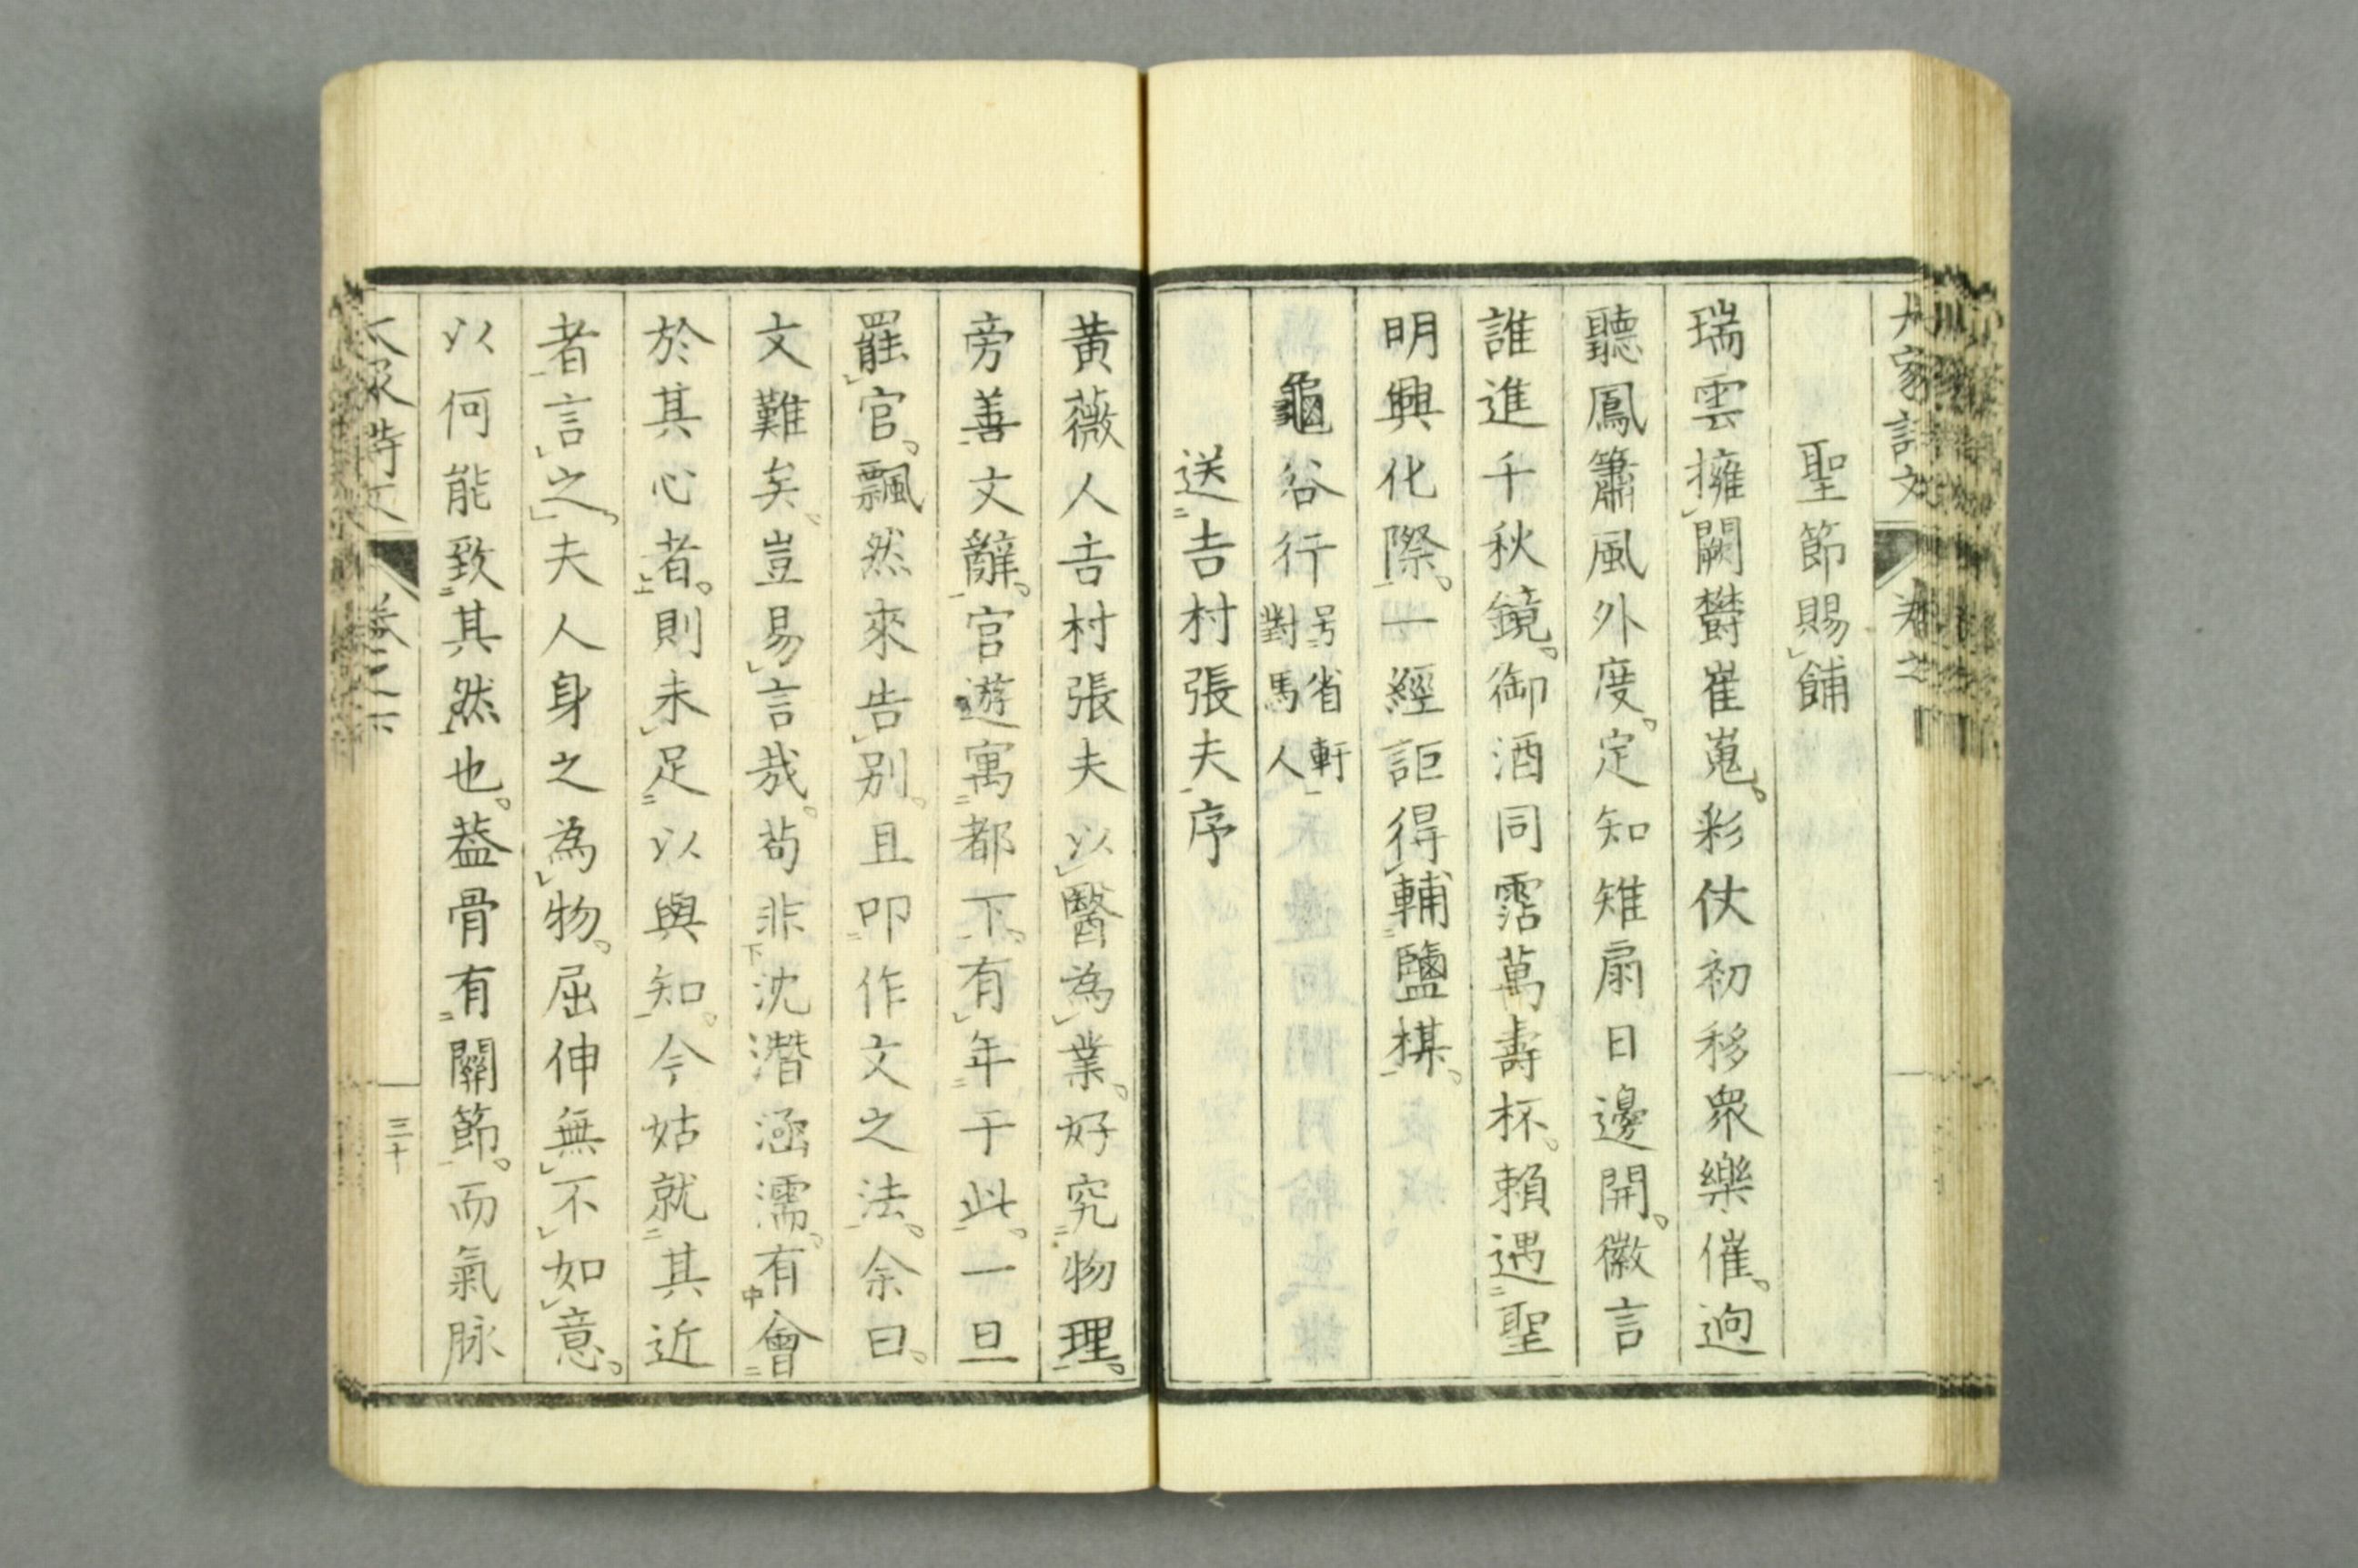 聖節賜酺
瑞雲擁闕欝崔嵬。彩仗初移衆樂催。迥
聽鳳簫風外度。定知雉扇日邊開。徽言
誰進千秋鏡。御酒同霑萬壽杯。頼遇聖
明興化際。一經詎得輔鹽棋。
龜谷行
号省軒
對馬人
送吉村張夫序
黄薇人吉村張夫以醫為業。好究物理。
旁善文辭。官遊寓都下。有年于此。一旦
罷官。飄然來告别。且叩作文之法。余曰。
文難矣。豈易言哉。苟非沈潛涵濡。有會
於其心者。則未足以與知。今姑就其近
者言之。夫人身之為物。屈伸無不如意。
以何能致其然也。葢骨有關節。而氣脉
三十